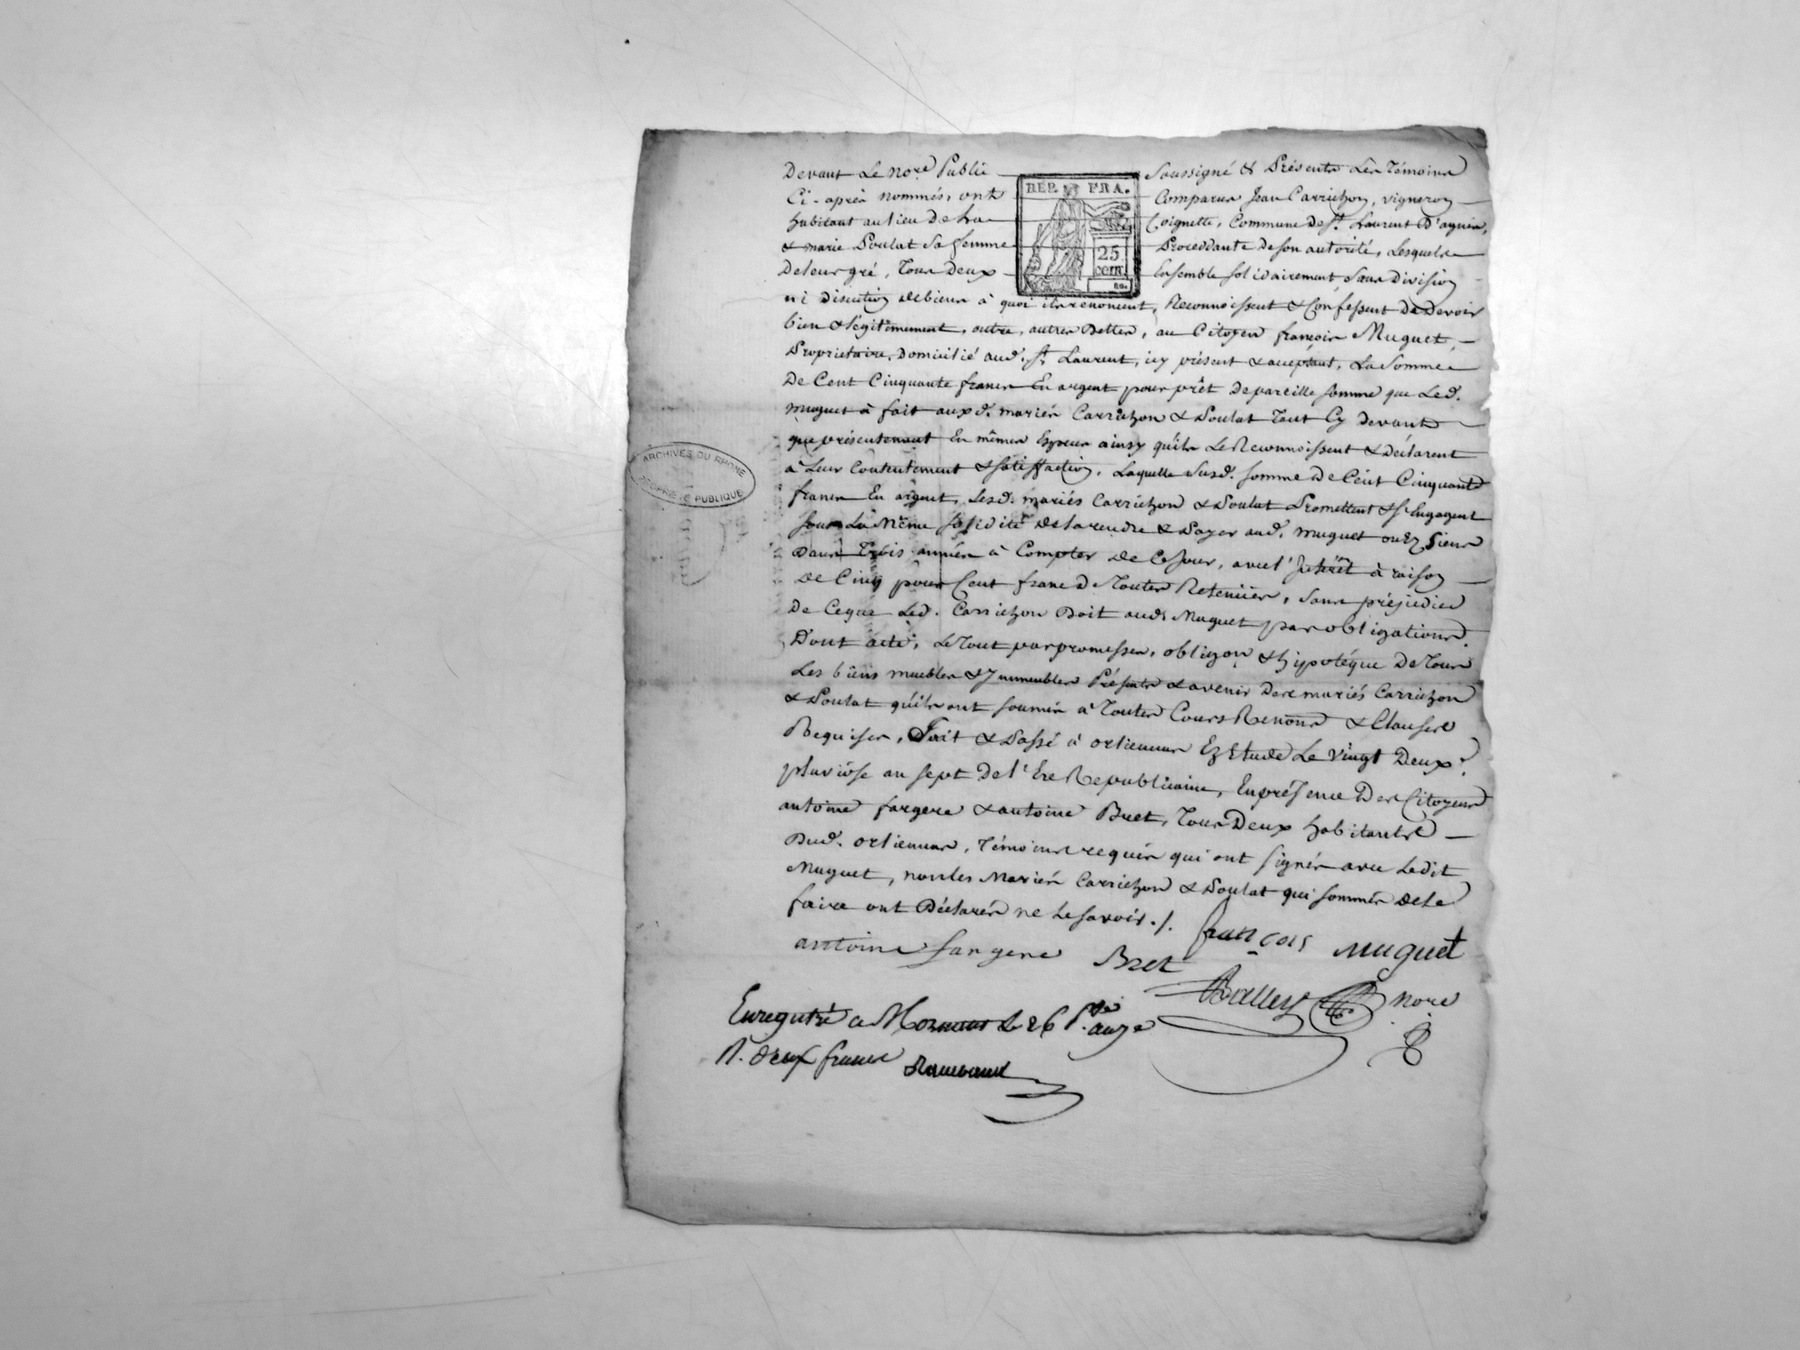 Devant Le no.re Public soussigné & Présents Les Témoins
Ci-après nommés, ont Comparus Jean Carrichon, vigneron
habitant au lieu de La Coignette, Commune de S.t Laurent D'agnin,
& marie Poulat Sa femme Proceddante de son autorité, Lesquels
De leur gré, Tous Deux Ensemble solidairement, sans Division
ni Discution de biens à quoi ils renoncent, Reconnoissent & Confessent De Devoir
bien & légitimement, outre, autres Dettes, au Citoyen françois Muguet,
Proprietaire, Domicilié aud. S.t Laurent, icy présent & acceptant, La Somme
De Cent Cinquante francs En argent pour prêt de pareille somme que Led.
muguet à fait auxd. mariés Carrichon & Poulat Tout Cy devant
que présentement En mêmes Espèces ainsy qu'ils Le Reconnoissent & Déclarent
à Leur Contentement & satisfaction, Laquelle Susd. somme De Cent Cinquante
francs En argent, Lesd. mariés Carrichon & Poulat Promettent & S'Engagent
sous La Même solidité De la rendre & Payer aud. muguet ou ez siens
Dans Trois années à Compter De Ce Jour, avec l'Intérêt à raison
De Cinq pour Cent franc De Toutes Retenües, sans préjudice
De Ceque Led. Carrichon Doit aud. Muguet par obligations
Dont acte, Le Tout par promesses, obligon & hypotéque De Tous
Les biens meubles & Immeubles Présents & avenir Des mariés Carrichon
& Poulat qu'ils ont soumis à Toutes Cours Renons & Clauses
Requises, fait & Passé à orlienas Ez Etude Le vingt Deux
pluviôse an sept de l'Ere Republicaine, En présence Des Citoyens
antoine fargere & antoine Bret, Tous Deux habitants
Dud. orlienas, Témoins requis qui ont signés avec Ledit
Muguet, non les Mariés Carrichon & Poulat qui sommés De Le
faire ont Déclarés ne Le savoir./.
françois muguet
antoine fargere Bret
nore
Enregistré a Mornant Le 26 P.se an 7e
R. deux francs
REP. FRA.
25 cent.
ARCHIVES DU RHONE
PROPRIETE PUBLIQUE